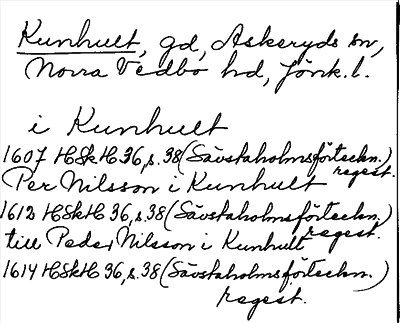 Kunhult, gd, Askeryds sn,
Norra Vedbo hd, Jönk. l.
i Kunhult
1607 HSkH 36, s. 38 (Sävstaholmsförteckn.)
regest.
Per Nilsson i Kunhult
1612 HSkH 36, s. 38 (Sävstaholmsförteckn.)
regest.
till Peder Nilsson i Kunhult
1614 HSkH 36, s. 38 (Sävstaholmsförteckn.)
regest.